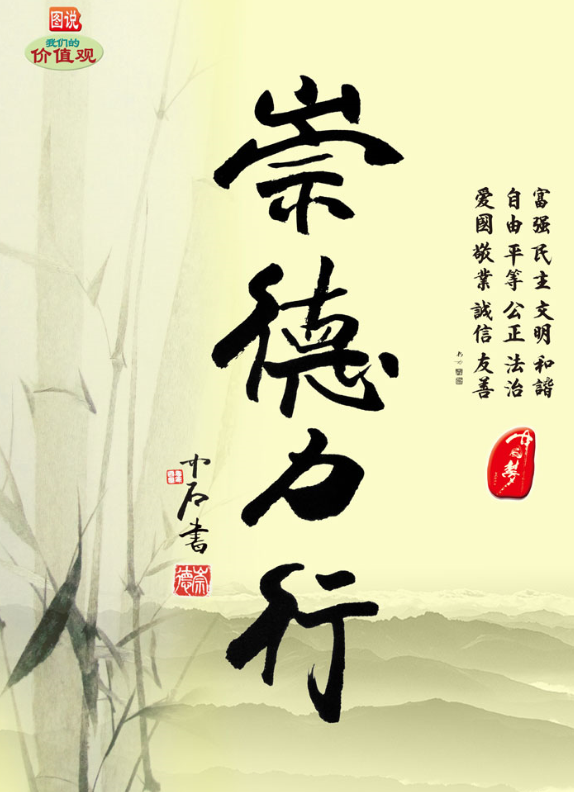 图说
我们的
价值观
崇德力行
富强 民主 文明 和諧
自由 平等 公正 法治
爱國 敬業 誠信 友善
中国梦
中石書
崇德